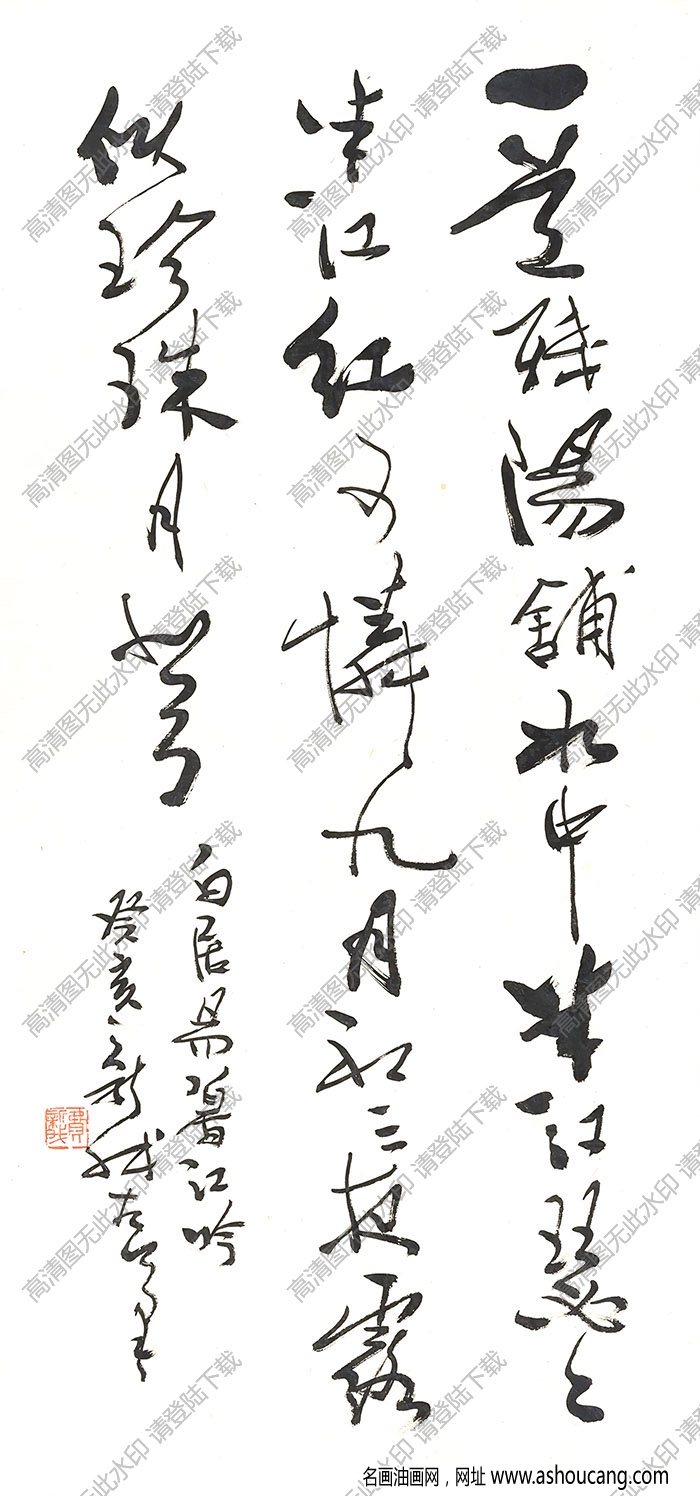 一道残陽舖水中半江瑟々
半江红可憐九月初三夜露
似珍珠月似弓
白居易暮江吟
癸亥新我左笔
高清图无此水印 请登陆下载
名画油画网，网址 www.ashoucang.com